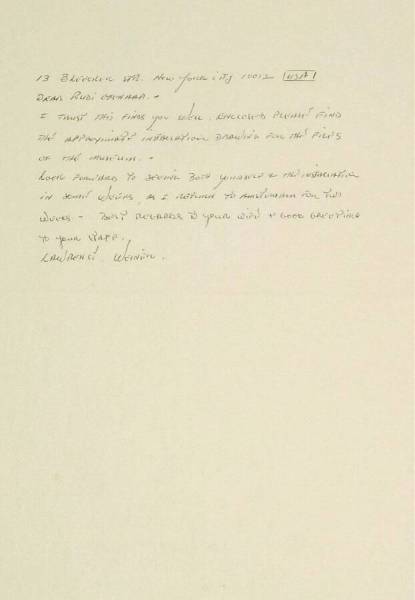 13 BLEECKER STR. NEW YORK CITY 10012 USA
DEAR RUDI OXENAAR. -
I TRUST THIS FINDS YOU WELL. ENCLOSED PLEASE FIND
THE APPROXIMATE INSTALLATION DRAWING FOR THE FILES
OF THE MUSEUM. -
LOOK FORWARD TO SEEING BOTH YOURSELF & THE INSTALLATION
IN SOME WEEKS, AS I RETURN TO AMSTERDAM FOR TWO
WEEKS - BEST REGARDS TO YOUR WIFE & GOOD GREETINGS
TO YOUR STAFF.
LAWRENCE WEINER.